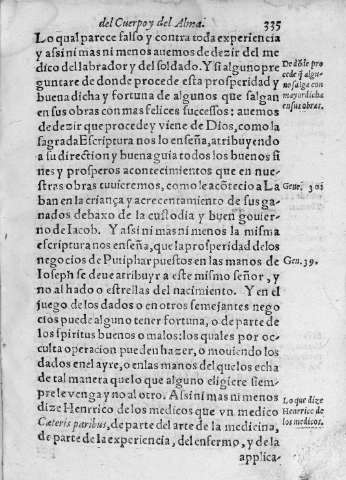 del Cuerpo y del Alma. 335
Lo qual parece falso y contra toda experiencia
y assi ni mas ni menos auemos de dezir del me
dico del labrador y del soldado. Y si alguno pre
guntare de donde procede esta prosperidad y
buena dicha y fortuna de algunos que salgan
en sus obras con mas felices sucessos: auemos
de dezir que procede y viene de Dios, como la
sagrada Escriptura nos lo enseña, atribuyendo
a su direction y buena guia todos los buenos fi
nes y prosperos acontecimientos que en nue-
stras obras tuuieremos, como le acōtecio a La
ban en la criança y acrecentamiento de sus ga-
nados debaxo de la custodia y buen gouier-
no de Iacob. Y assi ni mas ni menos la misma
escriptura nos enseña, que la prosperidad de los
negocios de Putiphar puestos en las manos de
Ioseph se deue atribuyr a este mismo señor, y
no al hado o estrellas del nacimiento. Y en el
juego de los dados o en otros semejantes nego
cios puede alguno tener fortuna, o de parte de
los spiritus buenos o malos: los quales por oc-
culta operacion pueden hazer, o mouiendo los
dados en el ayre, o en las manos del que los echa
de tal manera que lo que alguno eligiere siem-
pre le venga y no al otro. Assi ni mas ni menos
dize Henrrico de los medicos que vn medico
Cæteris paribus, de parte del arte de la medicina,
de parte de la experiencia, del enfermo, y de la
applica-
De dōde pro
cede q̄ algu-
no salga con
mayor dicha
en sus obras.
Gene. 30
Gen. 39.
Lo que dize
Henrrico de
los medicos.